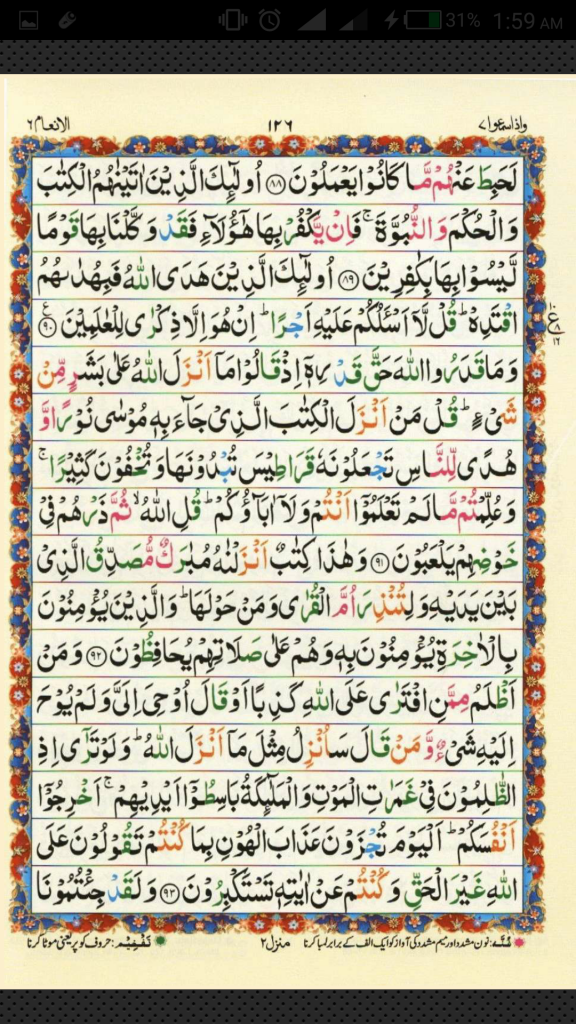 31% 1:59 AM
واذا سمعوا ٧ ١٢٦ الانعام ٦
لَحَبِطَ عَنْهُمْ مَّا كَانُوْا يَعْمَلُوْنَ ﴿۸۸﴾ اُولٰٓئِكَ الَّذِيْنَ اٰتَيْنٰهُمُ الْكِتٰبَ
وَالْحُكْمَ وَالنُّبُوَّةَ ۚ فَاِنْ يَّكْفُرْ بِهَا هٰٓؤُلَآءِ فَقَدْ وَكَّلْنَا بِهَا قَوْمًا
لَّيْسُوْا بِهَا بِكٰفِرِيْنَ ﴿۸۹﴾ اُولٰٓئِكَ الَّذِيْنَ هَدَى اللّٰهُ فَبِهُدٰىهُمُ
اقْتَدِهْ ؕ قُلْ لَّاۤ اَسْئَلُكُمْ عَلَيْهِ اَجْرًا ؕ اِنْ هُوَ اِلَّا ذِكْرٰى لِلْعٰلَمِيْنَ ﴿۹۰﴾
وَمَا قَدَرُوا اللّٰهَ حَقَّ قَدْرِهٖۤ اِذْ قَالُوْا مَاۤ اَنْزَلَ اللّٰهُ عَلٰى بَشَرٍ مِّنْ
شَىْءٍ ؕ قُلْ مَنْ اَنْزَلَ الْكِتٰبَ الَّذِىْ جَآءَ بِهٖ مُوْسٰى نُوْرًا وَّ
هُدًى لِّلنَّاسِ تَجْعَلُوْنَهٗ قَرَاطِيْسَ تُبْدُوْنَهَا وَتُخْفُوْنَ كَثِيْرًا ۚ
وَعُلِّمْتُمْ مَّا لَمْ تَعْلَمُوْۤا اَنْتُمْ وَلَاۤ اٰبَآؤُكُمْ ؕ قُلِ اللّٰهُ ۙ ثُمَّ ذَرْهُمْ فِىْ
خَوْضِهِمْ يَلْعَبُوْنَ ﴿۹۱﴾ وَهٰذَا كِتٰبٌ اَنْزَلْنٰهُ مُبٰرَكٌ مُّصَدِّقُ الَّذِىْ
بَيْنَ يَدَيْهِ وَلِتُنْذِرَ اُمَّ الْقُرٰى وَمَنْ حَوْلَهَا ؕ وَالَّذِيْنَ يُؤْمِنُوْنَ
بِالْاٰخِرَةِ يُؤْمِنُوْنَ بِهٖ وَهُمْ عَلٰى صَلَاتِهِمْ يُحَافِظُوْنَ ﴿۹۲﴾ وَمَنْ
اَظْلَمُ مِمَّنِ افْتَرٰى عَلَى اللّٰهِ كَذِبًا اَوْ قَالَ اُوْحِىَ اِلَىَّ وَلَمْ يُوْحَ
اِلَيْهِ شَىْءٌ وَّمَنْ قَالَ سَاُنْزِلُ مِثْلَ مَاۤ اَنْزَلَ اللّٰهُ ؕ وَلَوْ تَرٰٓى اِذِ
الظّٰلِمُوْنَ فِىْ غَمَرٰتِ الْمَوْتِ وَالْمَلٰٓئِكَةُ بَاسِطُوْۤا اَيْدِيْهِمْ ۚ اَخْرِجُوْۤا
اَنْفُسَكُمْ ؕ اَلْيَوْمَ تُجْزَوْنَ عَذَابَ الْهُوْنِ بِمَا كُنْتُمْ تَقُوْلُوْنَ عَلَى
اللّٰهِ غَيْرَ الْحَقِّ وَكُنْتُمْ عَنْ اٰيٰتِهٖ تَسْتَكْبِرُوْنَ ﴿۹۳﴾ وَلَقَدْ جِئْتُمُوْنَا
غنّہ: نون مشدد اور میم مشدد کی آواز کو ایک الف کے برابر لمبا کرنا منزل ٢ تفخیم: حروف کو پر یعنی موٹا کرنا